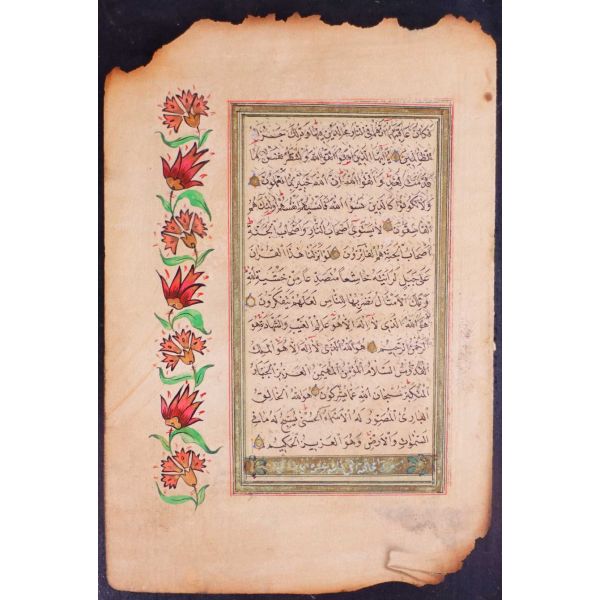 فَكَانَ عَاقِبَتَهُمَا اَنَّهُمَا فِي النَّارِ خَالِدَيْنِ فِيهَا وَذٰلِكَ جَزٰٓؤُا
الظَّالِمِينَ يَٓا اَيُّهَا الَّذِينَ اٰمَنُوا اتَّقُوا اللّٰهَ وَلْتَنْظُرْ نَفْسٌ مَا
قَدَّمَتْ لِغَدٍ وَاتَّقُوا اللّٰهَ اِنَّ اللّٰهَ خَبِيرٌ بِمَا تَعْمَلُونَ
وَلَا تَكُونُوا كَالَّذِينَ نَسُوا اللّٰهَ فَاَنْسٰيهُمْ اَنْفُسَهُمْ اُولٰٓئِكَ هُمُ
الْفَاسِقُونَ لَا يَسْتَوِٓي اَصْحَابُ النَّارِ وَاَصْحَابُ الْجَنَّةِ
اَصْحَابُ الْجَنَّةِ هُمُ الْفَٓائِزُونَ لَوْ اَنْزَلْنَا هٰذَا الْقُرْاٰنَ
عَلٰى جَبَلٍ لَرَاَيْتَهُ خَاشِعًا مُتَصَدِّعًا مِنْ خَشْيَةِ اللّٰهِ
وَتِلْكَ الْاَمْثَالُ نَضْرِبُهَا لِلنَّاسِ لَعَلَّهُمْ يَتَفَكَّرُونَ
هُوَ اللّٰهُ الَّذِي لَٓا اِلٰهَ اِلَّا هُوَ عَالِمُ الْغَيْبِ وَالشَّهَادَةِ هُوَ
الرَّحْمٰنُ الرَّحِيمُ هُوَ اللّٰهُ الَّذِي لَٓا اِلٰهَ اِلَّا هُوَ الْمَلِكُ
الْقُدُّوسُ السَّلَامُ الْمُؤْمِنُ الْمُهَيْمِنُ الْعَزِيزُ الْجَبَّارُ
الْمُتَكَبِّرُ سُبْحَانَ اللّٰهِ عَمَّا يُشْرِكُونَ هُوَ اللّٰهُ الْخَالِقُ
الْبَارِئُ الْمُصَوِّرُ لَهُ الْاَسْمَٓاءُ الْحُسْنٰى يُسَبِّحُ لَهُ مَا فِي
السَّمٰوَاتِ وَالْاَرْضِ وَهُوَ الْعَزِيزُ الْحَكِيمُ